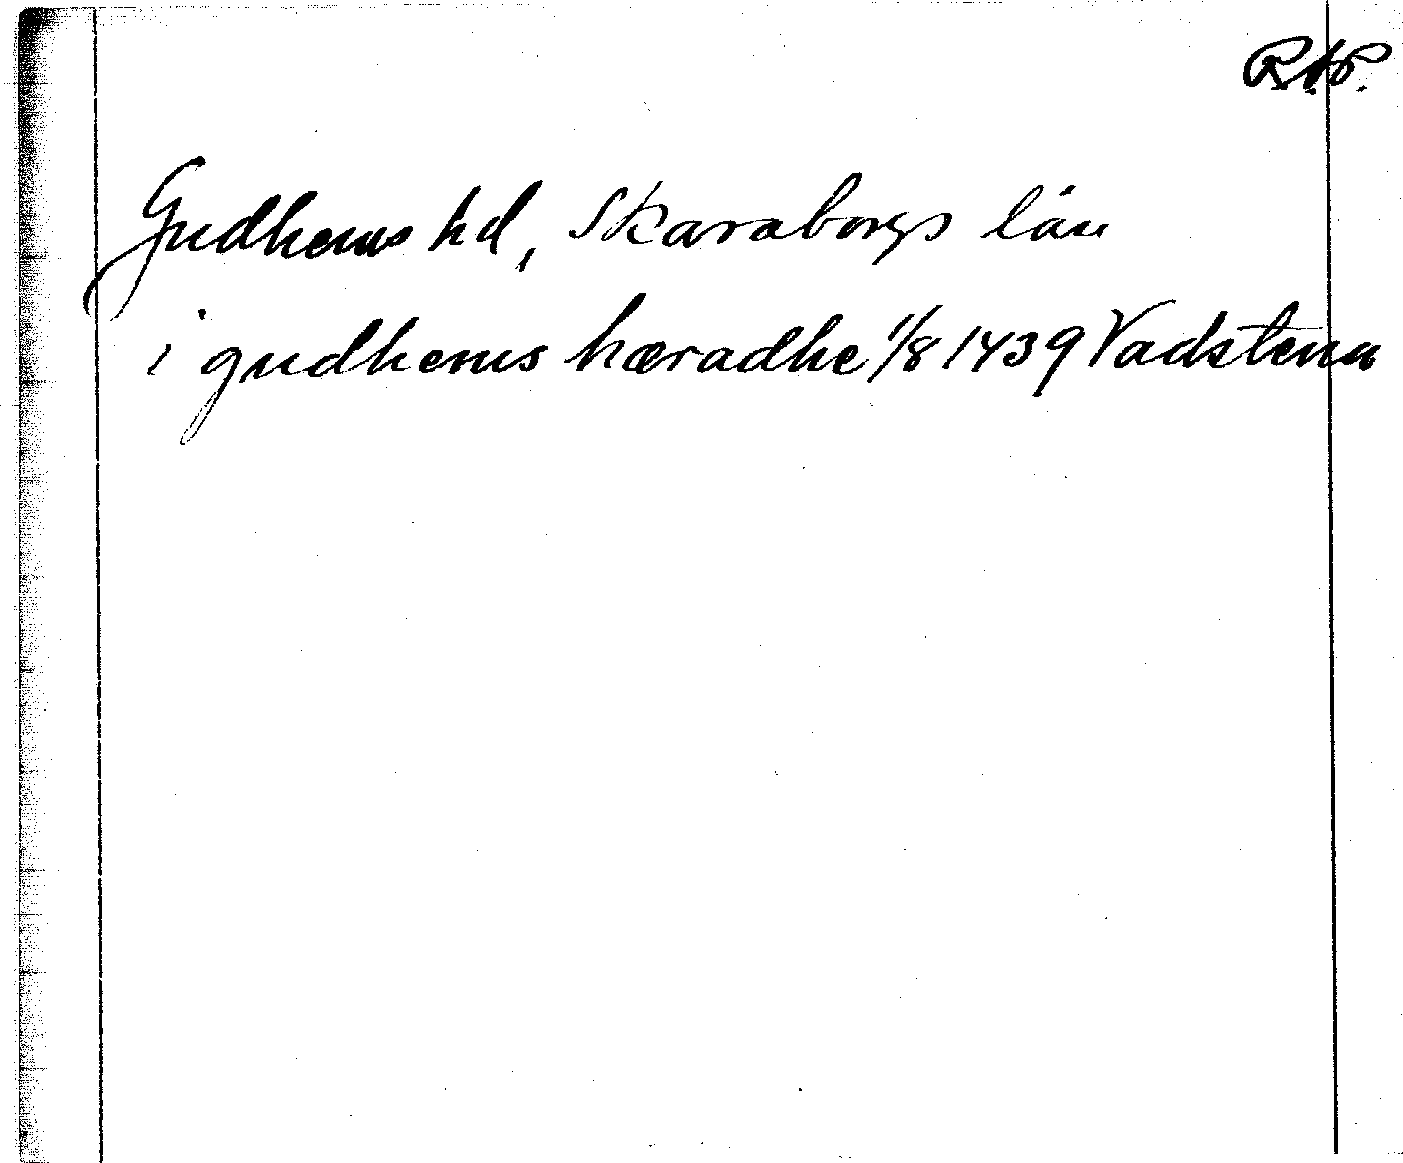 RAP.
Gudhems hd, Skaraborgs län
i gudhems hæradhe 1/8 1439 Vadstena